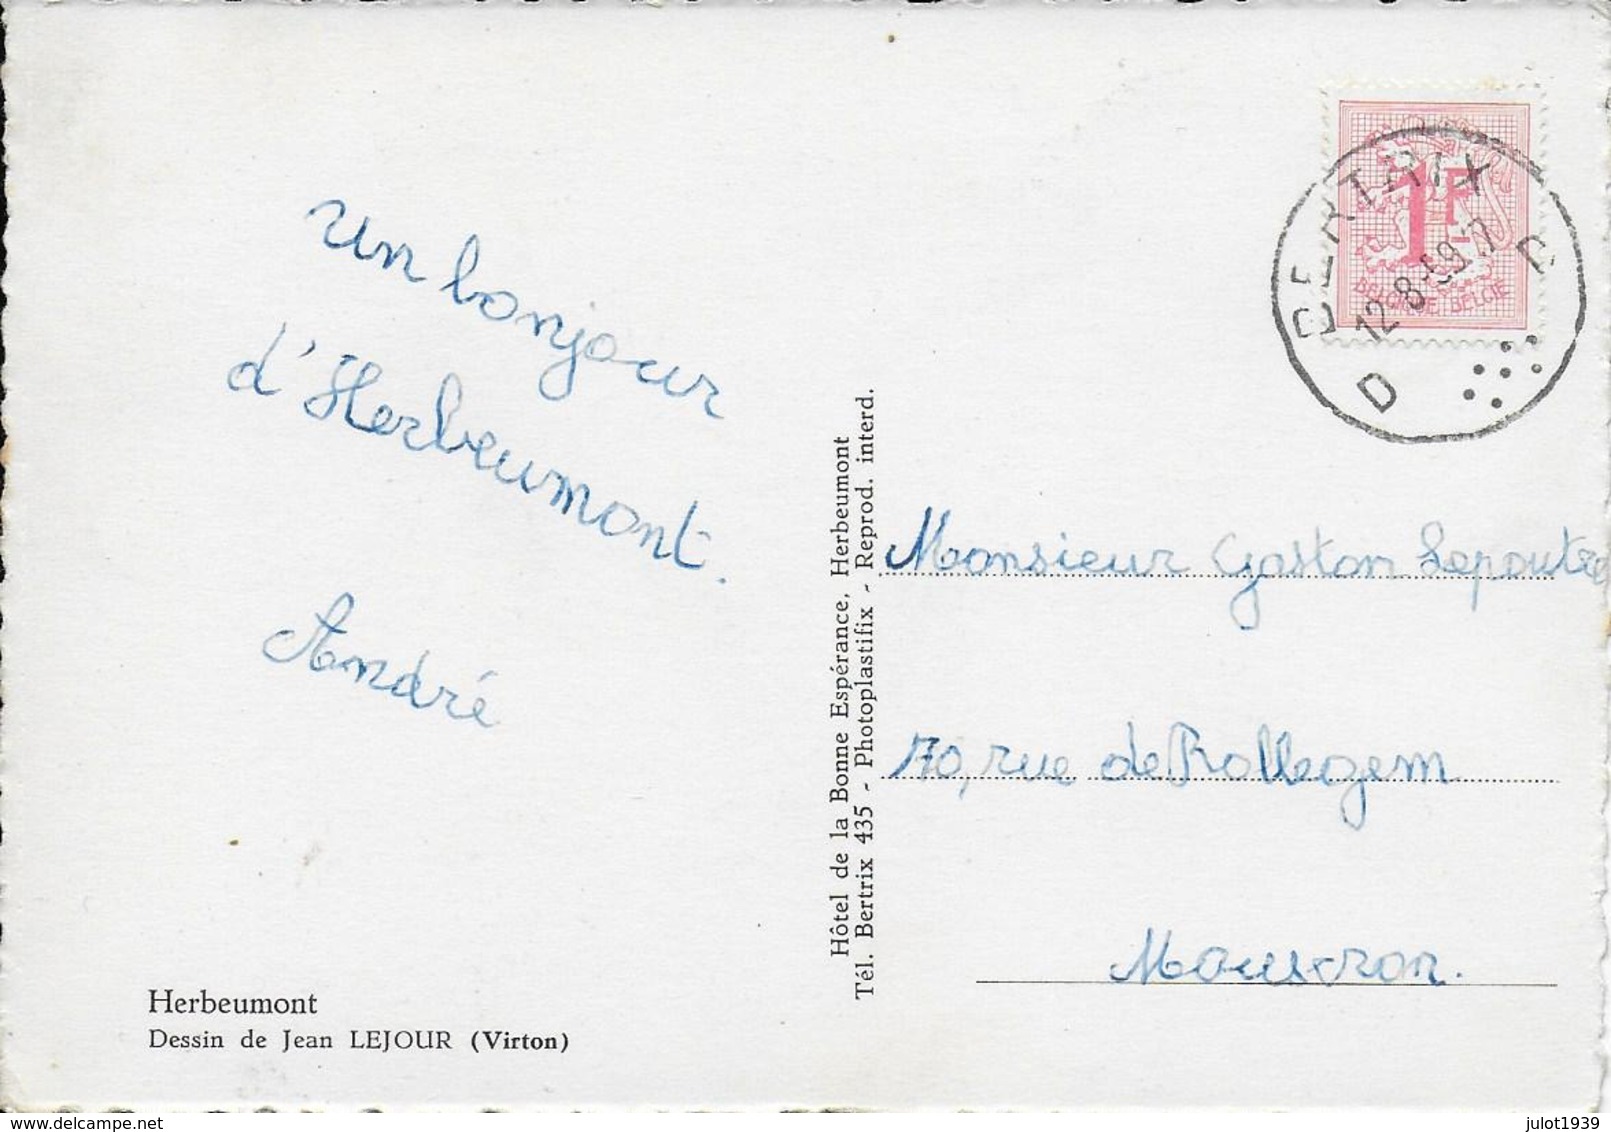 un bonjour
d'Herbeumont.
André
Herbeumont
Dessin de Jean LEJOUR (Virton)
Hôtel de la Bonne Espérance, Herbeumont
Tél. Bertrix 435 - Photoplastifix - Reprod. interd.
1F
BELGIQUE BELGIË
BERTRIX
12-8-59
D D
Monsieur Gaston Lepoutre
170, rue de Rollegem
Mouscron.
www.delcampe.net
julot1939